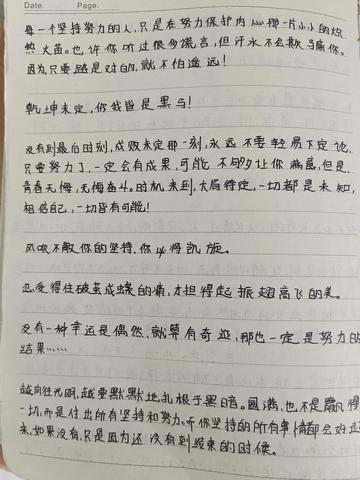 Date.        Page.
每一个坚持努力的人,只是在努力保护内心那一片小小的炽
热火苗。也许你听过很多谎言,但汗水不会欺骗你。
因为只要路是对的,就不怕遥远!
乾坤未定,你我皆是黑马!
没有到最后时刻,成败未定那一刻,永远不要轻易下定论,
只要努力了,一定会有成果,可能不够让你满意,但是,
青春无悔,无悔奋斗。时机未到,大局待定,一切都是未知,
相信自己,一切皆有可能!
风吹不散你的坚持,你必将凯旋。
忍受得住破茧成蝶的痛,才担得起振翅高飞的美。
没有一种幸运是偶然,就算有奇迹,那也一定是努力的
结果……
越向往光明,越要默默地扎根于黑暗。圆满,也不是赢得
一切,而是付出所有坚持和努力。你坚持的所有事情都会好起
来,如果没有,只是因为还没有到结束的时候。